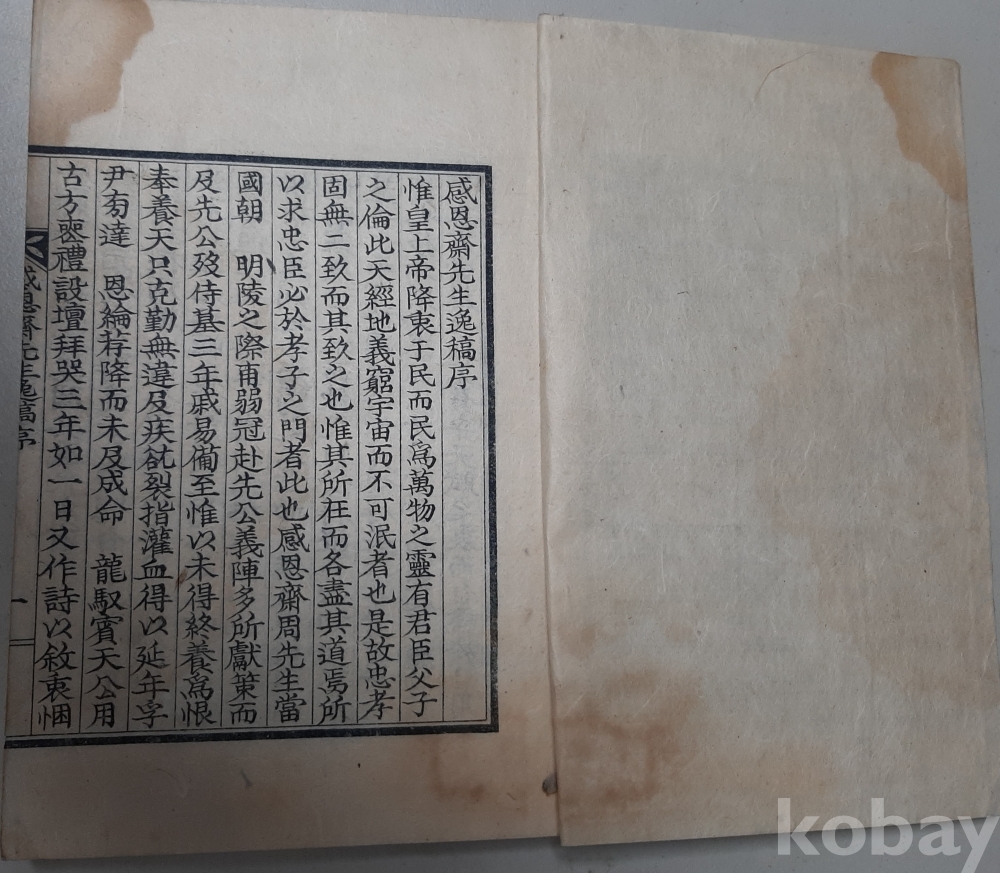 感恩齋先生逸稿序
惟皇上帝降衷于民而民爲萬物之靈有君臣父子
之倫此天經地義窮宇宙而不可泯者也是故忠孝
固無二致而其致之也惟其所在而各盡其道焉所
以求忠臣必於孝子之門者此也感恩齋周先生當
國朝 明陵之際甫弱冠赴先公義陣多所獻策而
及先公歿侍墓三年戚易備至惟以未得終養爲恨
奉養天只克勤無違及疾㞃裂指灌血得以延年字
尹匋達 恩綸荐降而未及成命 龍馭賓天公用
古方喪禮設壇拜哭三年如一日又作詩以敘衷悃
感恩齋先生逸稿序
一
kobay